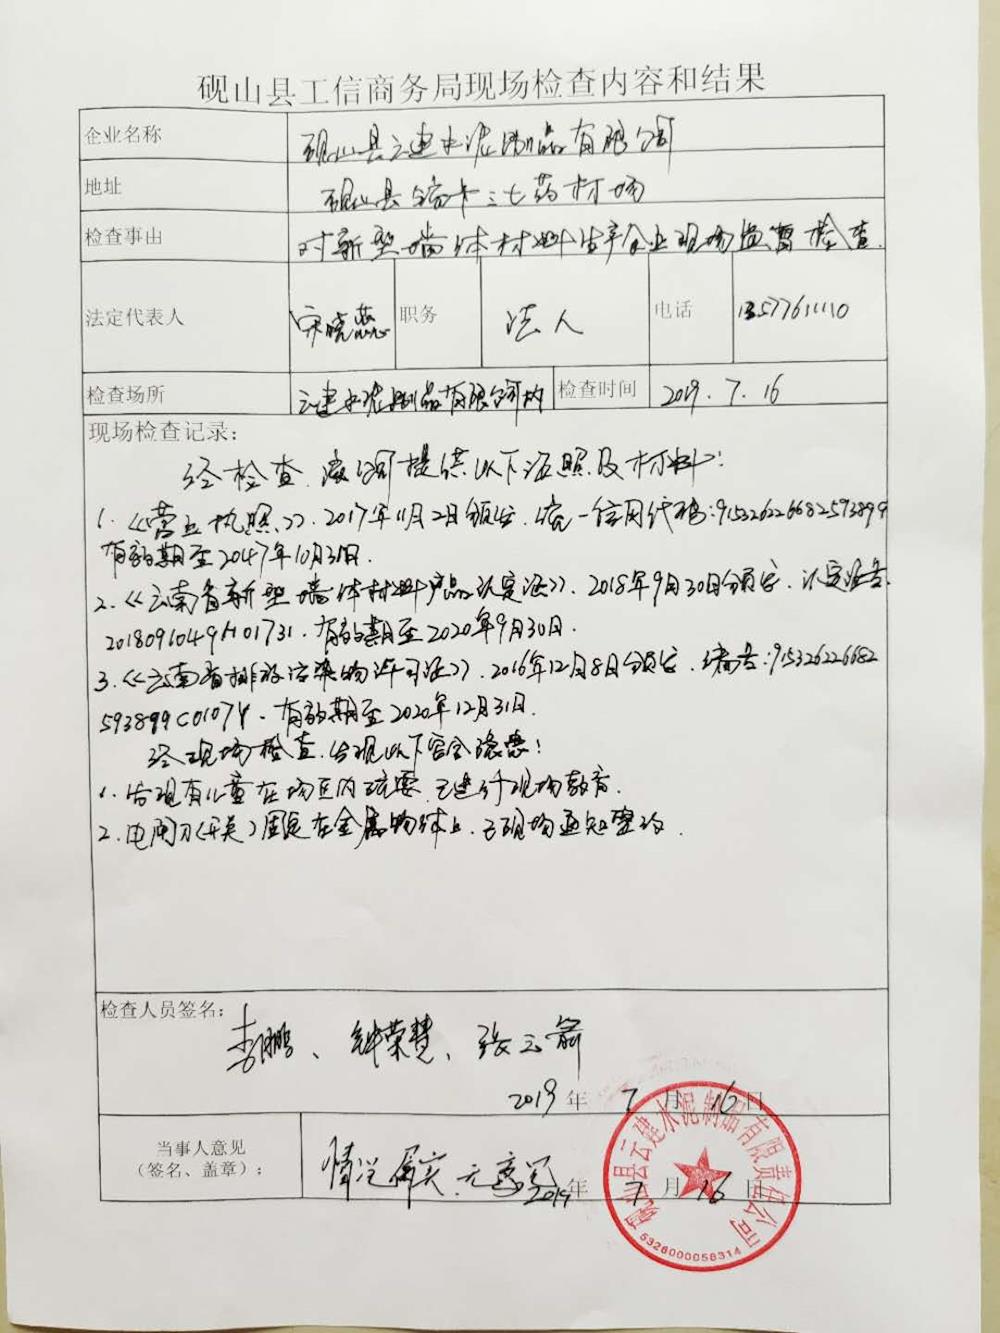 砚山县工信商务局现场检查内容和结果
企业名称 砚山县云建水泥制品有限公司
地址 砚山县 三七药材场
检查事由 对新型墙体材料生产企业现场监督检查.
法定代表人 宋晓蕊 职务 法人 电话 13577611110
检查场所 云建水泥制品有限公司内 检查时间 2019.7.16
现场检查记录：
经检查,该公司提供以下证照及材料:
1.《营业执照》.2017年11月2日颁发.统一信用代码:915326226682593899
有效期至2047年10月31日.
2.《云南省新型墙体材料产品认定证》.2018年9月30日颁发.认定证号
2018091049H01731.有效期至2020年9月30日.
3.《云南省排放污染物许可证》.2016年12月8日颁发.编号:915326226682
593899C0107Y.有效期至2020年12月31日.
经现场检查,发现以下安全隐患:
1.发现有儿童在场区内玩耍.已进行现场教育.
2.电闸刀(开关)固定在金属物体上.已现场通知整改.
检查人员签名：
李鹏、钟荣慧、张云
2019年7月16日
当事人意见
（签名、盖章）：
情况属实.无意见
2019年7月16日
砚山县云建水泥制品有限责任公司
5326000058314